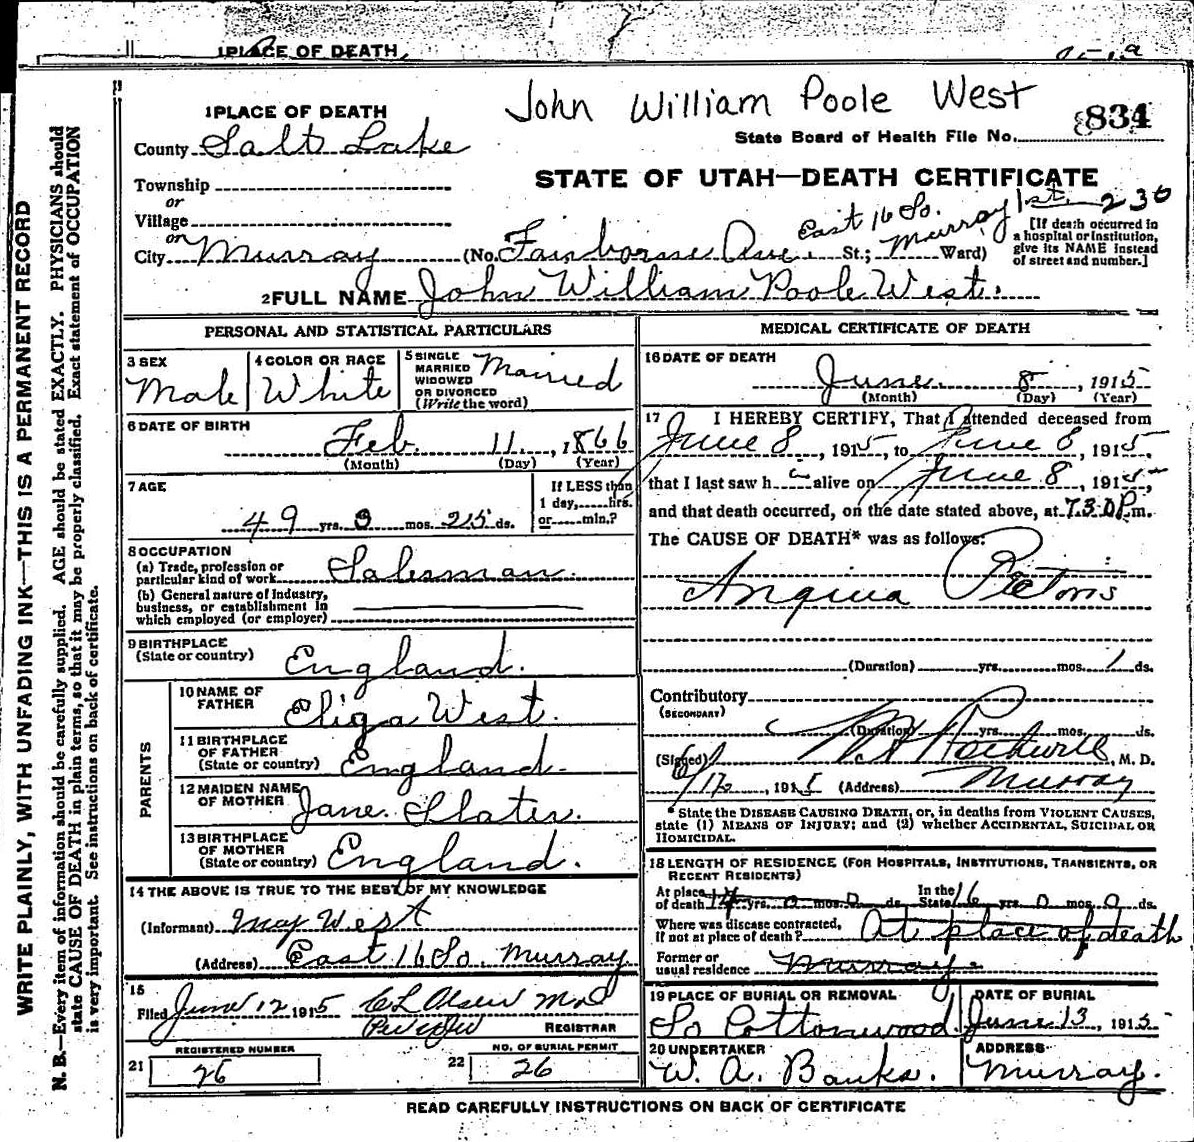 1 PLACE OF DEATH
John William Poole West
1 PLACE OF DEATH
834
State Board of Health File No.
County Salt Lake
Township
or
Village
or
City Murray
STATE OF UTAH—DEATH CERTIFICATE
East 16 So. Murray 1st. 230
(No. Fairborne Ave. St.; Murray Ward)
[If death occurred in a hospital or institution, give its NAME instead of street and number.]
2 FULL NAME John William Poole West.
PERSONAL AND STATISTICAL PARTICULARS
3 SEX
Male
4 COLOR OR RACE
White
5 SINGLE MARRIED WIDOWED OR DIVORCED (Write the word)
Married
6 DATE OF BIRTH
Feb. 11, 1866
(Month) (Day) (Year)
7 AGE
49 yrs. 3 mos. 25 ds.
If LESS than
1 day, hrs.
or min.?
8 OCCUPATION
(a) Trade, profession or
particular kind of work Salesman.
(b) General nature of Industry,
business, or establishment in
which employed (or employer)
9 BIRTHPLACE
(State or country) England.
PARENTS
10 NAME OF
FATHER Eliga West.
11 BIRTHPLACE
OF FATHER
(State or country) England.
12 MAIDEN NAME
OF MOTHER Jane. Slater.
13 BIRTHPLACE
OF MOTHER
(State or country) England.
14 THE ABOVE IS TRUE TO THE BEST OF MY KNOWLEDGE
(Informant) May West
(Address) East 16 So. Murray
15
Filed June 12 1915 C L Olsen MD
REGISTRAR
REGISTERED NUMBER
21 26
NO. OF BURIAL PERMIT
22 26
MEDICAL CERTIFICATE OF DEATH
16 DATE OF DEATH
June. 8, 1915
(Month) (Day) (Year)
17 I HEREBY CERTIFY, That I attended deceased from
June 8, 1915, to June 8, 1915,
that I last saw h alive on June 8, 1915,
and that death occurred, on the date stated above, at 7.30 P m.
The CAUSE OF DEATH* was as follows:
Angina Pectoris
(Duration) yrs. mos. 1 ds.
Contributory
(SECONDARY)
(Duration) yrs. mos. ds.
(Signed) Rockwell, M. D.
6/12, 1915 (Address) Murray
*State the DISEASE CAUSING DEATH, or, in deaths from VIOLENT CAUSES,
state (1) MEANS OF INJURY; and (2) whether ACCIDENTAL, SUICIDAL OR
HOMICIDAL.
18 LENGTH OF RESIDENCE (FOR HOSPITALS, INSTITUTIONS, TRANSIENTS, OR
RECENT RESIDENTS)
At place In the
of death 14 yrs. 0 mos. 0 ds. State 16 yrs. 0 mos. 0 ds.
Where was disease contracted,
if not at place of death? At place of death
Former or
usual residence Murray.
19 PLACE OF BURIAL OR REMOVAL
So Cottonwood
DATE OF BURIAL
June 13, 1915
20 UNDERTAKER
W. A. Banks.
ADDRESS
Murray.
READ CAREFULLY INSTRUCTIONS ON BACK OF CERTIFICATE
WRITE PLAINLY, WITH UNFADING INK—THIS IS A PERMANENT RECORD
N. B.—Every item of information should be carefully supplied. AGE should be stated EXACTLY. PHYSICIANS should
state CAUSE OF DEATH in plain terms, so that it may be properly classified. Exact statement of OCCUPATION
is very important. See instructions on back of certificate.